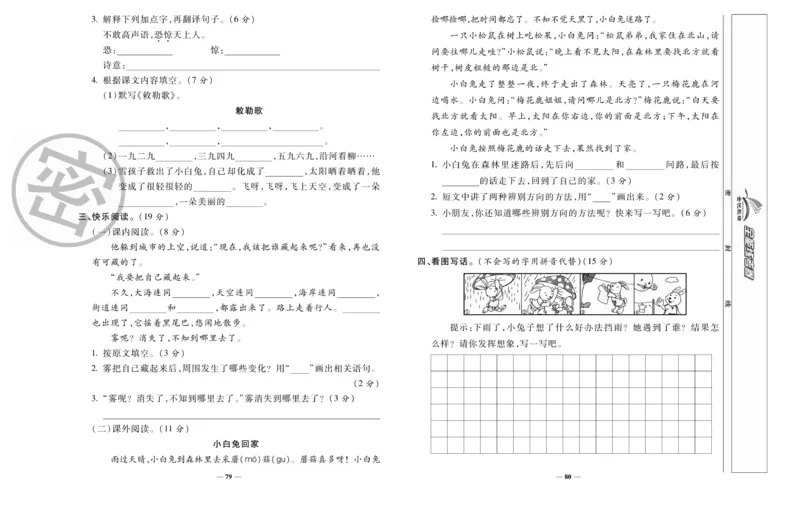 3. 解释下列加点字,再翻译句子。(6 分)
不敢高声语,恐惊天上人。
恐:____________ 惊:____________
诗意:____________
4. 根据课文内容填空。(7 分)
(1)默写《敕勒歌》。
敕勒歌
__________,__________,__________,__________。
__________,__________,__________。
(2)一九二九________,三九四九________,五九六九,沿河看柳……
(3)雪孩子救出了小白兔,自己却化成了________,太阳晒着晒着,他
变成了很轻很轻的________。飞呀,飞呀,飞上天空,变成了一朵
____________,一朵美丽的________。
三、快乐阅读。(19 分)
(一)课内阅读。(8 分)
他躲到城市的上空,说道:“现在,我该把谁藏起来呢?”看来,再也没
有可藏的了。
“我要把自己藏起来。”
不久,大海连同________,天空连同________,海岸连同________,
街道连同________和________,都露出来了。路上走着行人。______
也出现了,它摇着黑尾巴,悠闲地散步。
雾呢?消失了,不知到哪里去了。
1. 按原文填空。(3 分)
2. 雾把自己藏起来后,周围发生了哪些变化?用“____”画出相关语句。
(2 分)
3. “雾呢?消失了,不知到哪里去了。”雾消失到哪里去了?(3 分)
(二)课外阅读。(11 分)
小白兔回家
雨过天晴,小白兔到森林里去采蘑(mó)菇(gu)。蘑菇真多呀!小白兔
— 79 —
捡哪捡哪,把时间都忘了。不知不觉天黑了,小白兔迷路了。
一只小松鼠在树上吃松果,小白兔问:“松鼠弟弟,我家住在北山,请
问要往哪儿走哇?”小松鼠说:“晚上看不见太阳,在森林里要找北方就看
树干,树皮粗糙的那边是北。”
小白兔走了整整一夜,终于走出了森林。天亮了,一只梅花鹿在河
边喝水。小白兔问:“梅花鹿姐姐,请问哪儿是北方?”梅花鹿说:“白天要
找北方就看太阳。早上,太阳在你右边,你的前面是北方;下午,太阳在
你左边,你的前面也是北方。”
小白兔按照梅花鹿的话走下去,果然找到了家。
1. 小白兔在森林里迷路后,先后向________和________问路,最后按
________的话走下去,回到了自己的家。(3 分)
2. 短文中讲了两种辨别方向的方法,用“____”画出来。(2 分)
3. 小朋友,你还知道哪些辨别方向的方法呢?快来写一写吧。(6 分)
四、看图写话。(不会写的字用拼音代替)(15 分)
提示:下雨了,小兔子想了什么好办法挡雨?她遇到了谁?结果怎
么样?请你发挥想象,写一写吧。
— 80 —
密
封
线
密